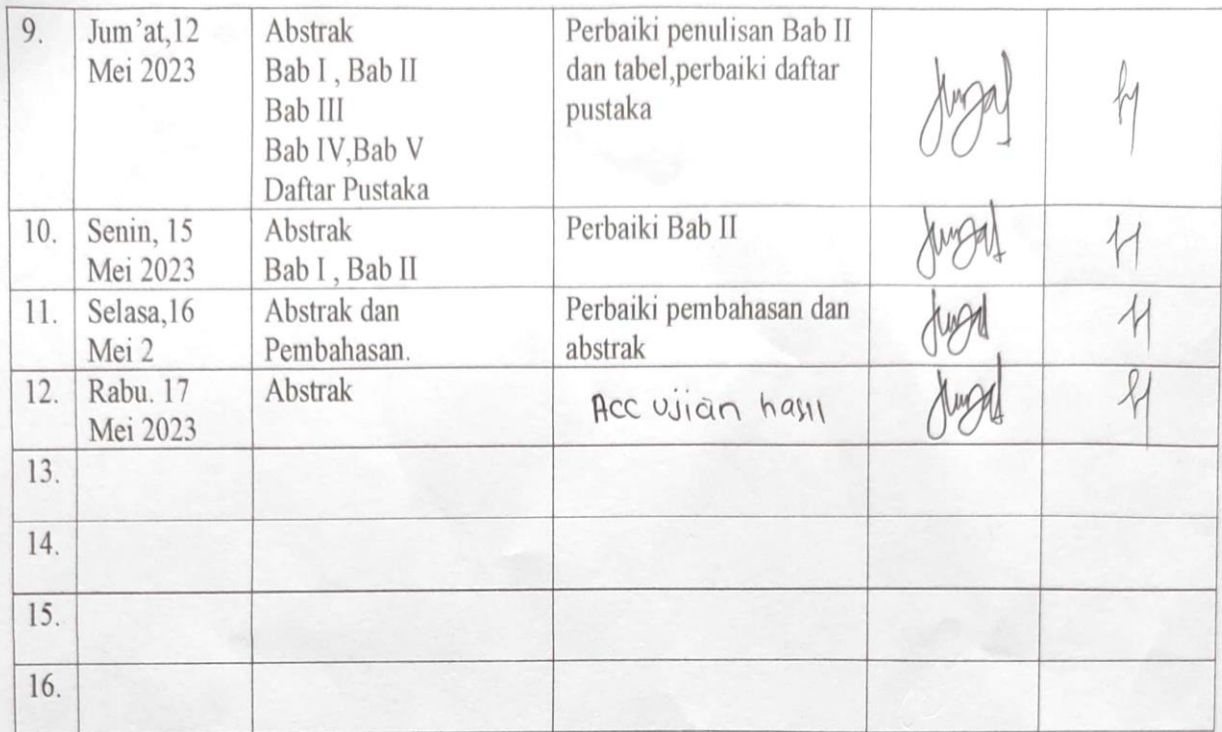 9.
Jum'at,12
Mei 2023
Abstrak
Bab I , Bab II
Bab III
Bab IV,Bab V
Daftar Pustaka
Perbaiki penulisan Bab II
dan tabel,perbaiki daftar
pustaka
10.
Senin, 15
Mei 2023
Abstrak
Bab I , Bab II
Perbaiki Bab II
11.
Selasa,16
Mei 2
Abstrak dan
Pembahasan.
Perbaiki pembahasan dan
abstrak
12.
Rabu. 17
Mei 2023
Abstrak
Acc ujian hasil
13.
14.
15.
16.